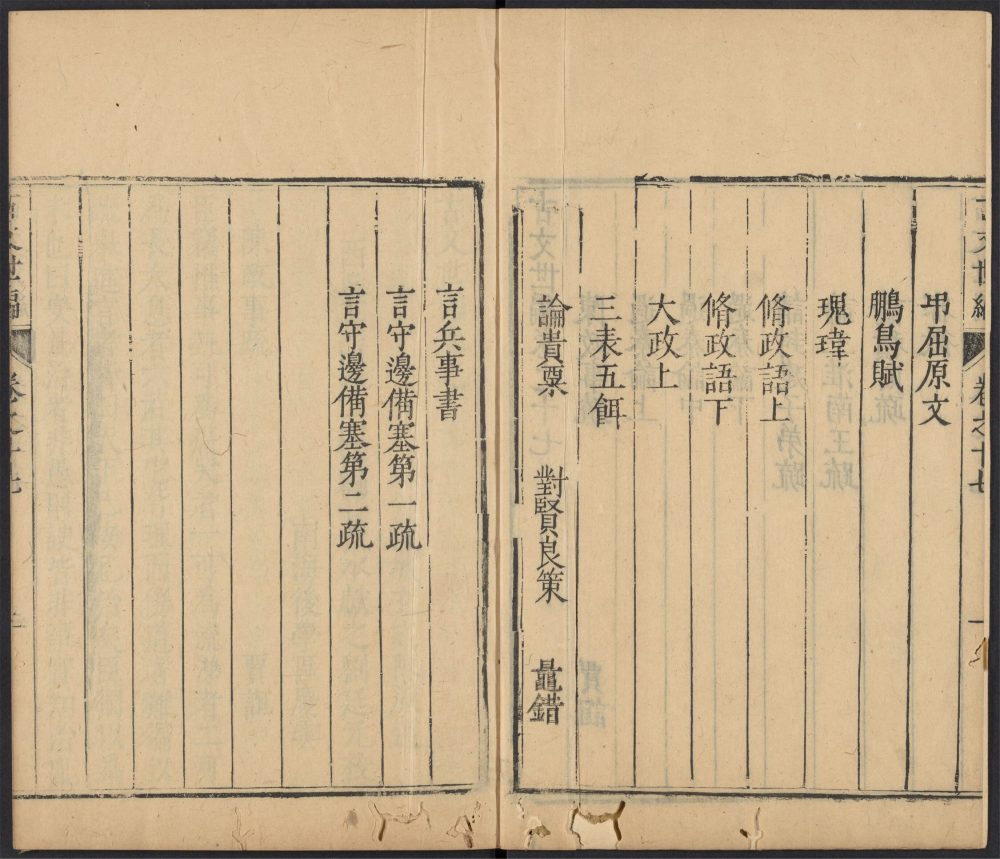 古文世編 卷之十七 一
弔屈原文
鵬鳥賦
瑰瑋
脩政語上
脩政語下
大政上
三表五餌
論貴粟 對賢良策 鼂錯
言兵事書
言守邊備塞第一疏
言守邊備塞第二疏
古文世編 卷之十七 二